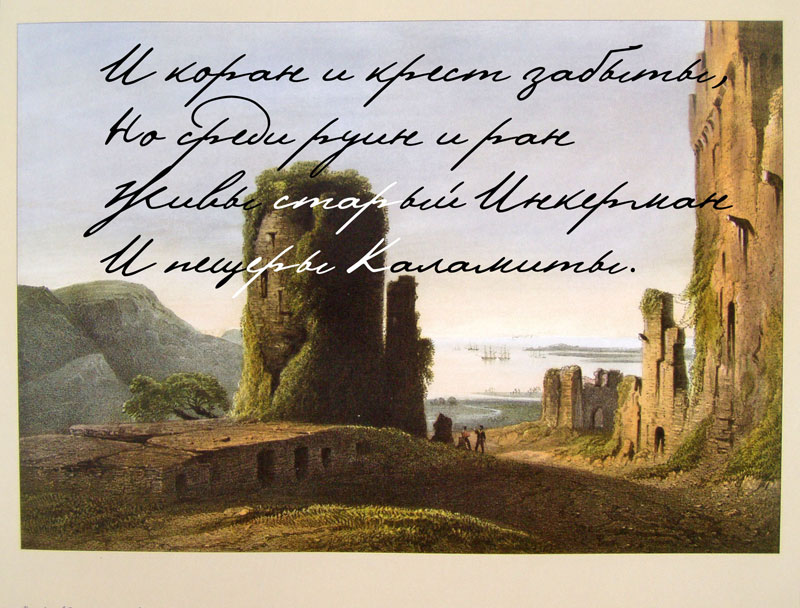 И коран и крест забыты,
Но среди руин и ран
Живы старый Инкерман
И пещеры Каламиты.